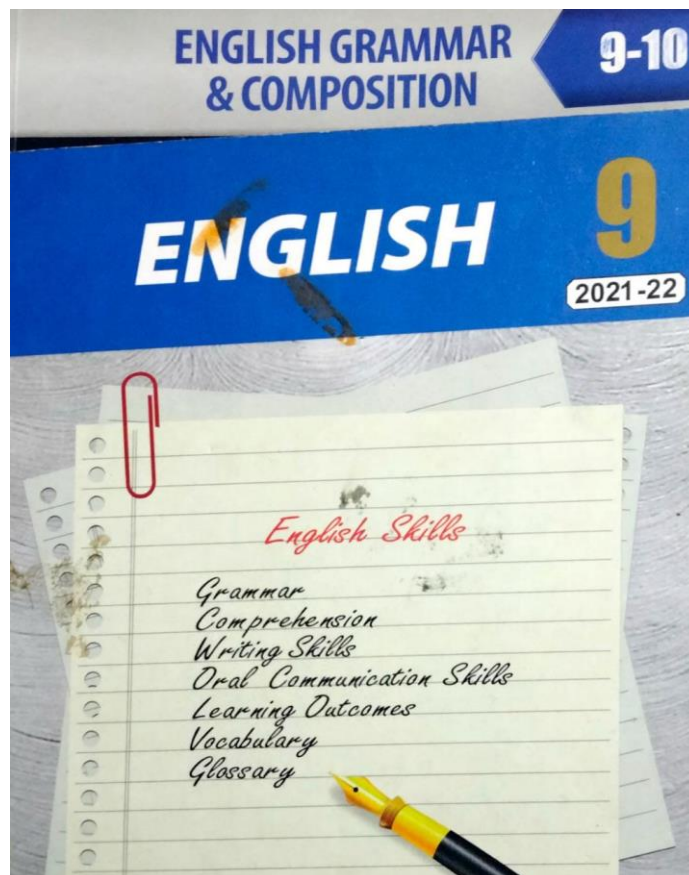 ENGLISH GRAMMAR
& COMPOSITION
9-10
ENGLISH
9
2021-22
English Skills
Grammar
Comprehension
Writing Skills
Oral Communication Skills
Learning Outcomes
Vocabulary
Glossary